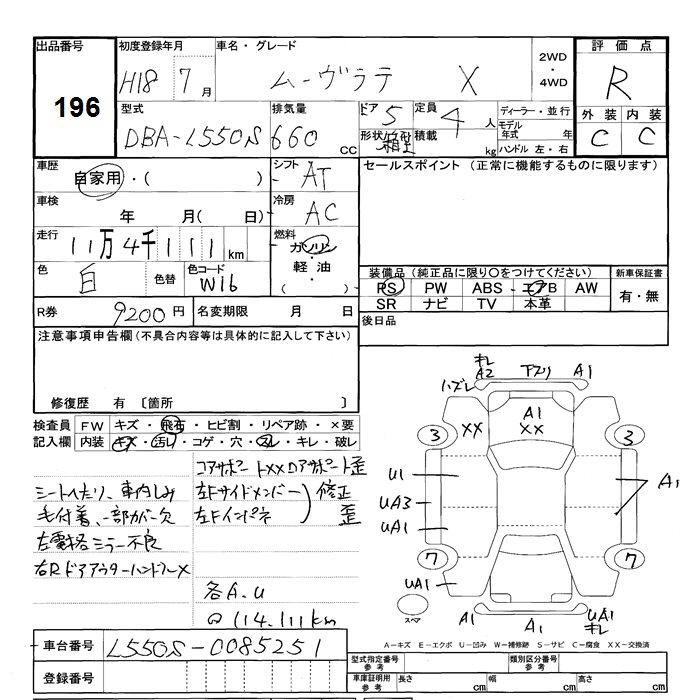 出品番号
196
初度登録年月
H18 7月
車名・グレード
ムーヴラテ X
2WD
・
4WD
評価点
R
外装 内装
C C
型式
DBA-L550S
排気量
660 CC
ドア 5
形状 箱型
定員 4人
積載 kg
ディーラー・並行
モデル年式 年
ハンドル 左・右
車歴
自家用・( )
シフト AT
車検
年 月( 日)
冷房 AC
走行
11万4千111km
燃料
ガソリン
・
軽油
・
( )
色
白
色替
色コード
W16
R券 9200円
名変期限 月 日
セールスポイント (正常に機能するものに限ります)
装備品(純正品に限り○をつけてください)
新車保証書
PS PW ABS エアB AW
SR ナビ TV 本革
有・無
後日品
注意事項申告欄(不具合内容等は具体的に記入して下さい)
修復歴 有 〔箇所 〕
検査員記入欄
FW キズ・飛石・ヒビ割・リペア跡・×要
内装 キズ・汚れ・コゲ・穴・スレ・キレ・破レ
コアサポートXX ロアサポート歪
左Fサイドメンバー
左Fインパネ
修正
歪
シートへたり、車内しみ
毛付着、一部カバー欠
左電格ミラー不良
右Rドアアウターハンドル×
各A.U
114.111km
キレ
A2
アズリ
A1
ハズレ
XX
A1
XX
3
3
U1
UA3
UA1
A1
7
7
UA1
スペア
A1
A1
UA1
キレ
A-キズ E-エクボ U-凹み W-補修跡 S-サビ C-腐食 XX-交換済
車台番号 L550S-0085251
登録番号
型式指定番号 参考
類別区分番号 参考
車庫証明用 参考
長さ cm
幅 cm
高さ cm